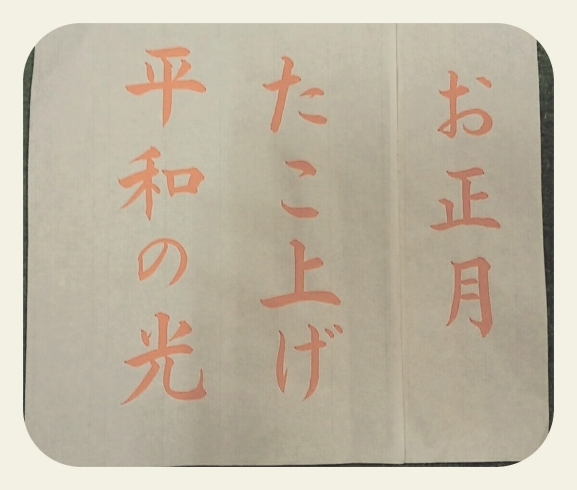 お正月
たこ上げ
平和の光